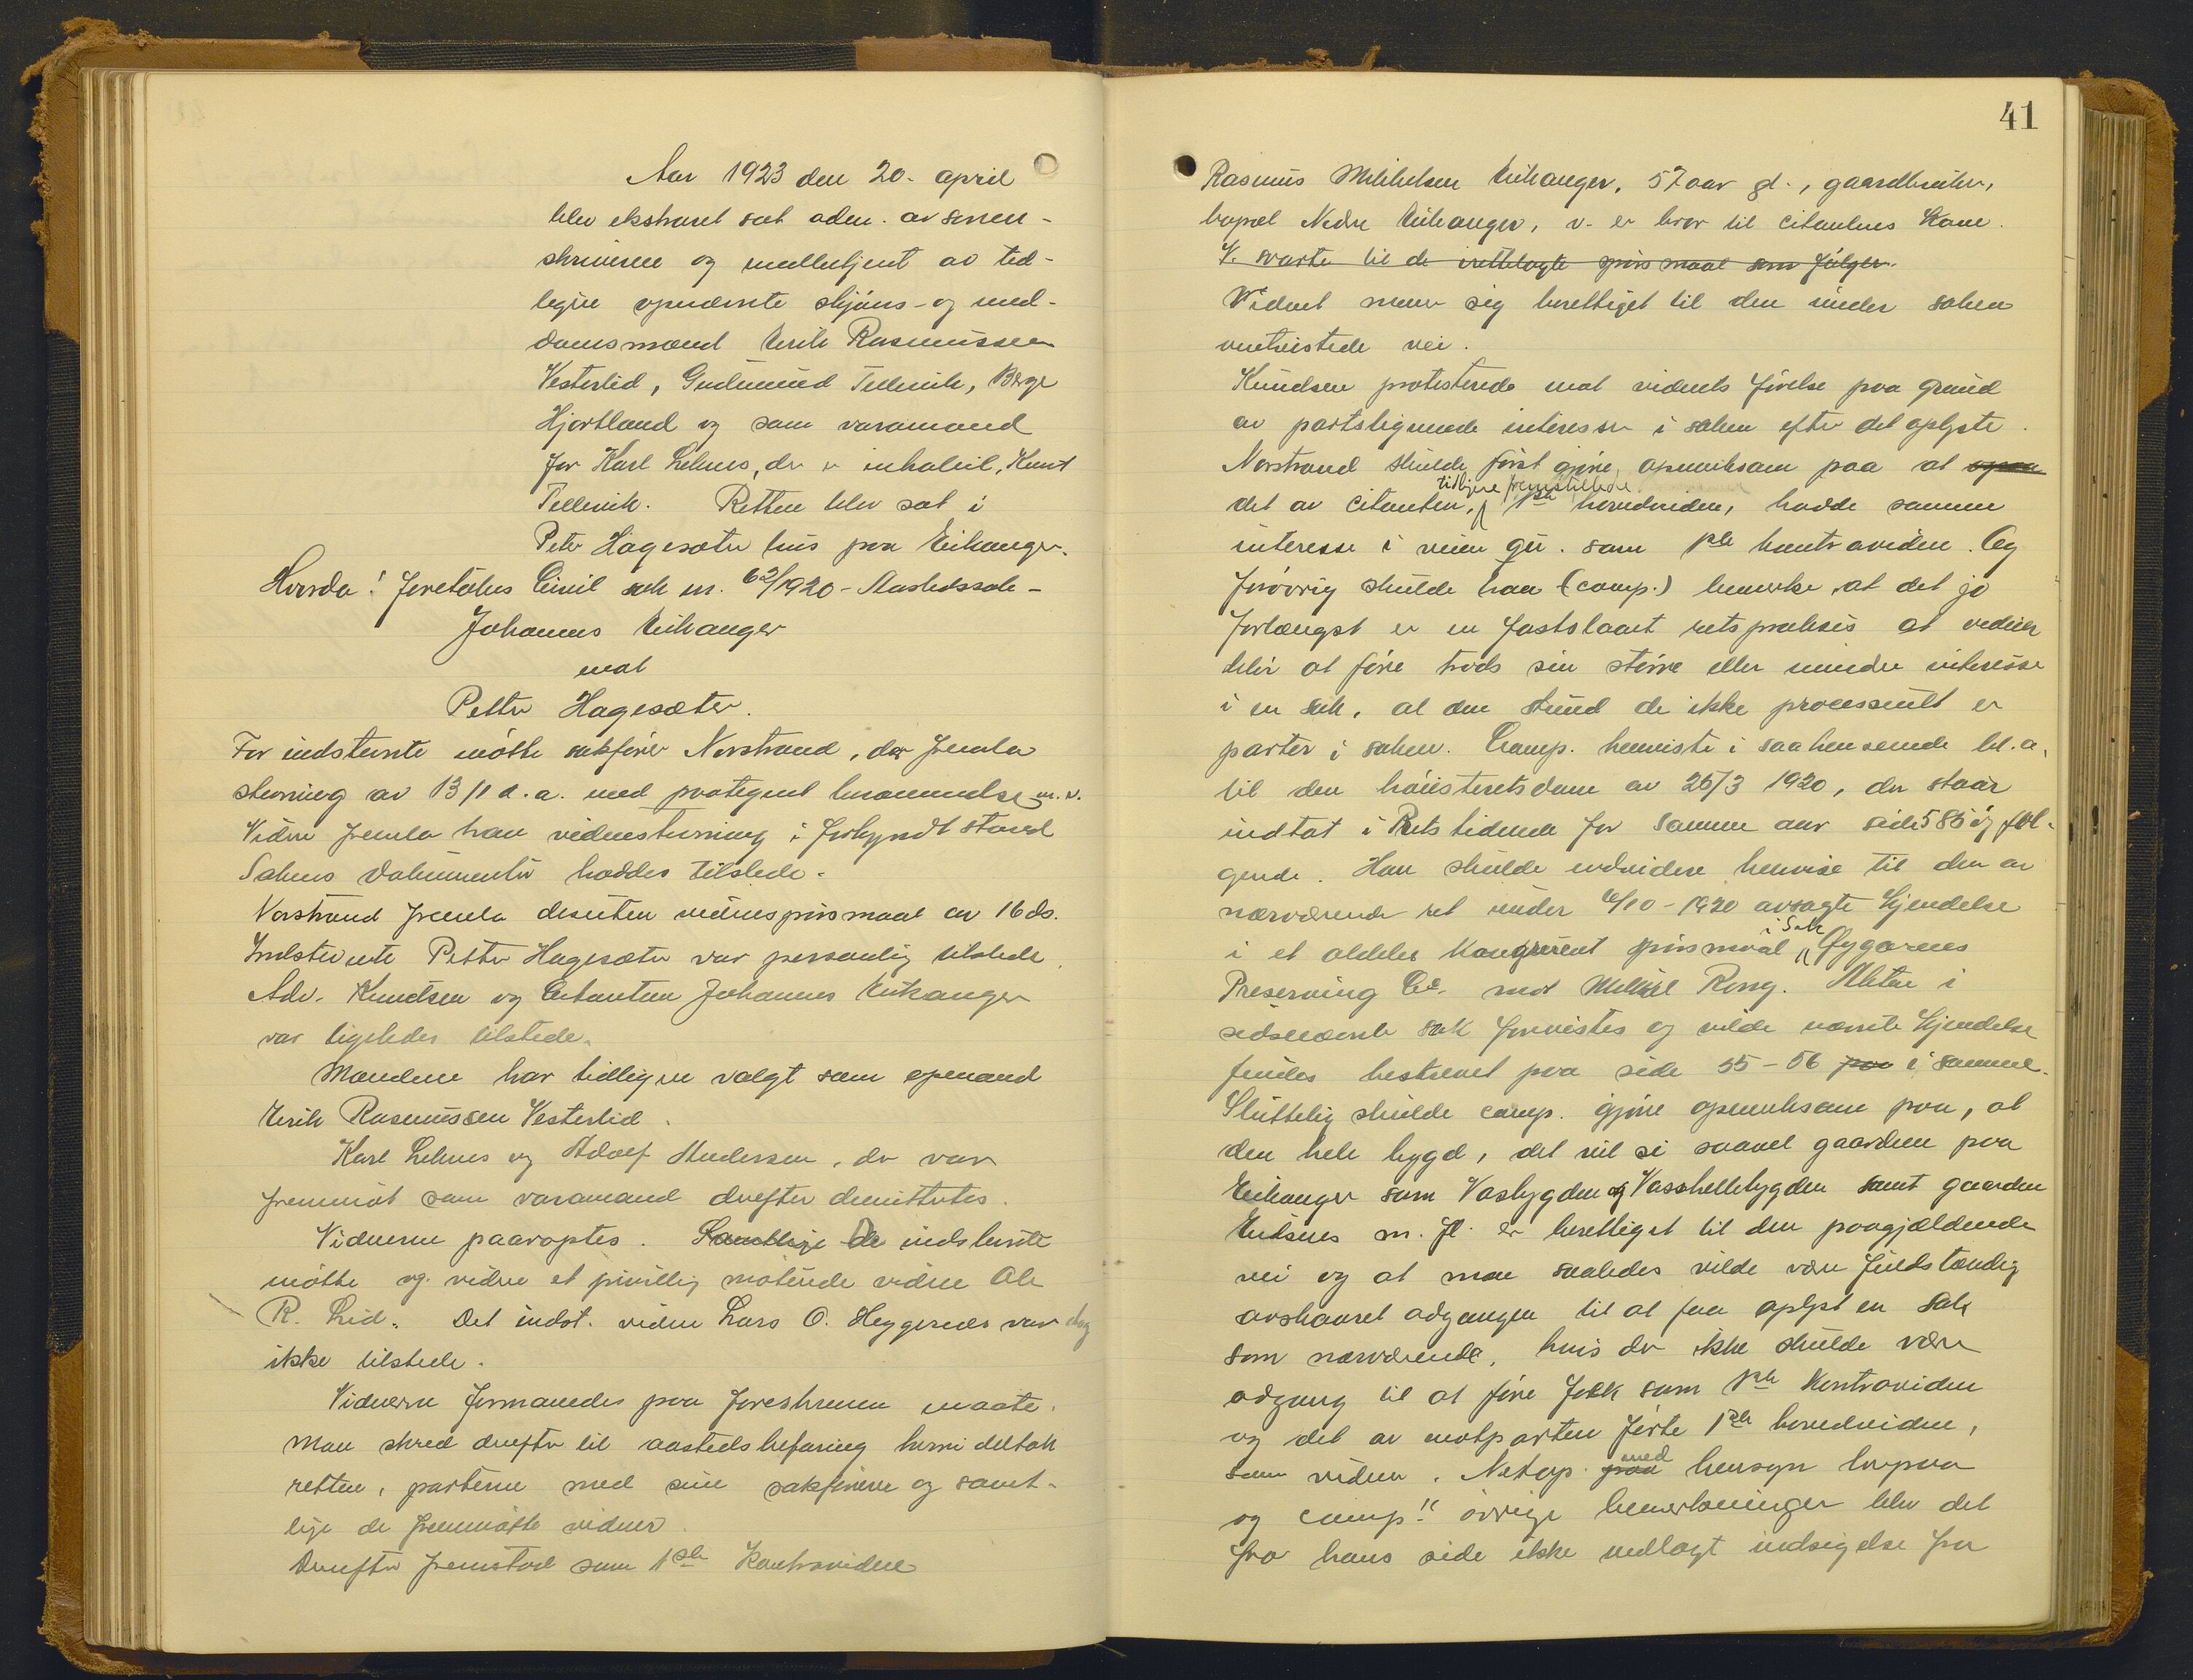 Aar 1923 den 20. april
blev ekstraret sat aden. av soren-
skriveren og meddebetjent av tid-
ligere opnævnte skjöns- og med-
domsmænd Eirik Rasmussen
Vesterlid, Gudmund Tellevik, Berge
Hjortland og som varamand
for Karl Lehnes, der er inhabil, Knut
Tellevik. Retten blev sat i
Peter Hagesæter hus paa Eikanger.
Hvorda! foretokes Civil sak nr. 62/1920 - Aastedssak -
Johannes Eikanger
mot
Petter Hagesæter.
For indstevnte mötte sakförer Norstrand, der fremla
stevning av 13/1 d.a. med paategnet berammelse m.v.
Videre fremla han vidnestevning i forkyndt stand
Sakens dokumenter haddes tilstede.
Norstrand fremla desuten vidnespörsmaal av 16 ds.
Indstevnte Petter Hagesæter var personlig tilstede.
Adv. Knudsen og Citanten Johannes Eikanger
var ligeledes tilstede.
Mændene har tidligere valgt som opmand
Eirik Rasmussen Vesterlid.
Karl Lehnes og Adolf Andersen, der var
fremmöt som varamand derefter demittertes.
Vidnerne paaroptes. Samtlige De indstevnte
mötte og videre et frivillig mötende vidne Ole
R. Lid. Det indst. vidne Lars O. Heggernes var dog
ikke tilstede.
Vidnerne formanedes paa foreskreven maate.
Man skred derefter til aastedsbefaring hvori deltok
retten, parterne med sine sakförere og samt-
lige de fremmötte vidner.
Derefter fremstod som 1ste Kontravidne
41
Rasmus Mikkelsen Eikanger, 57 aar gl., gaardbruker,
bopæl Nedre Eikanger, v. er bror til citantens Kone.
V. svarte til de irettelagte spörsmaal som fölger.
Vidnet mener sig berettiget til den under saken
omtvistede vei.
Knudsen protesterede mot vidnets förelse paa grund
av partslignende interesser i saken efter det oplyste.
Norstrand skulde först gjöre opmerksom paa at ogsaa
tidligere fremstillede
det av citanten, 1ste hovedvidne, hadde samme
interesse i veien gu. som 1ste kontravidne. Og
forövrig skulde han (comp.) bemerke at det jo
forlængst er en fastslaaet retspraksis at vidner
blir at före trods sin större eller mindre interesse
i en sak, al den stund de ikke processuelt er
parter i saken. Comp. henviste i saa henseende bl.a.
til den höiesteretsdom av 26/3 1920, der staar
indtat i Retstidende for samme aar side 585 og föl-
gende. Han skulde endvidere henvise til den av
nærværende ret under 6/10-1920 avsagte Kjendelse
i Sak
i et aldeles kongruent spörsmaal Øygarnes
Preserving Co. mot Mikkel Rong. Akten i
sidstnævnte sak forevistes og vilde nævnte Kjendelse
findes beskrevet paa side 55-56 paa i samme.
Sluttelig skulde comp. gjöre opmerksom paa, at
den hele bygd, det vil si saavel gaardene paa
Eikanger som Vasbygden og Vasshellebygden samt gaarden
Eidsnes m. fl. er berettiget til den paagjældende
vei og at man saaledes vilde være fuldstændig
avskaaret adgangen til at faa oplyst en sak
som nærværende, hvis der ikke skulde være
adgang til at före folk som 1ste Kontravidne
og det av motparten förte 1ste hovedvidne,
med
som vidner. Netop paa hensyn herpaa
og comp!s övrige bemerkninger blev det
fra hans side ikke nedlagt indsigelse fra